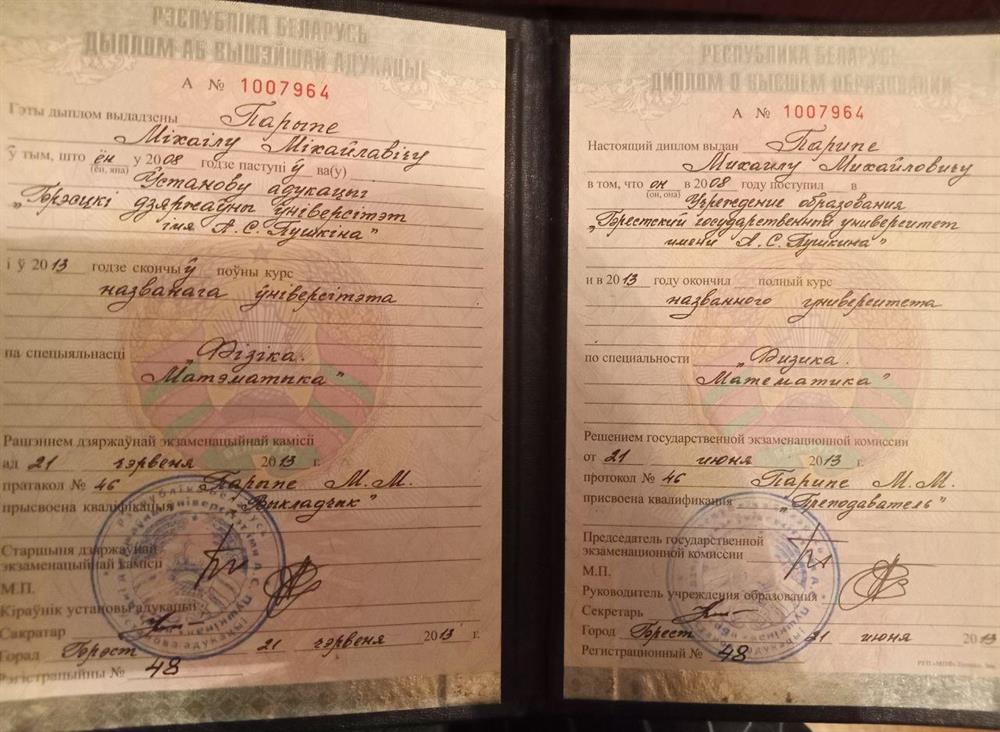 РЭСПУБЛІКА БЕЛАРУСЬ
ДЫПЛОМ АБ ВЫШЭЙШАЙ АДУКАЦЫІ
А № 1007964
Гэты дыплом выдадзены Парыпе
Міхаілу Міхайлавічу
ў тым, што ён у 2008 годзе паступіў ва(у)
(ён, яна)
Установу адукацыі
„Брэсцкі дзяржаўны ўніверсітэт
імя А.С. Пушкіна"
і ў 2013 годзе скончыў поўны курс
названага ўніверсітэта
па спецыяльнасці „Фізіка.
Матэматыка"
Рашэннем дзяржаўнай экзаменацыйнай камісіі
ад 21 чэрвеня 2013 г.
пратакол № 46 Парыпе М.М.
прысвоена кваліфікацыя „Выкладчык"
Старшыня дзяржаўнай
экзаменацыйнай камісіі
М.П.
Кіраўнік установы адукацыі
Сакратар
Горад Брэст 21 чэрвеня 2013 г.
Рэгістрацыйны № 48
РЕСПУБЛИКА БЕЛАРУСЬ
ДИПЛОМ О ВЫСШЕМ ОБРАЗОВАНИИ
А № 1007964
Настоящий диплом выдан Парипе
Михаилу Михайловичу
в том, что он в 2008 году поступил в
(он, она)
Учреждение образования
„Брестский государственный университет
имени А.С. Пушкина"
и в 2013 году окончил полный курс
названного университета
по специальности „Физика.
Математика"
Решением государственной экзаменационной комиссии
от 21 июня 2013 г.
протокол № 46 Парипе М.М.
присвоена квалификация „Преподаватель"
Председатель государственной
экзаменационной комиссии
М.П.
Руководитель учреждения образования
Секретарь
Город Брест 21 июня 2013
Регистрационный № 48